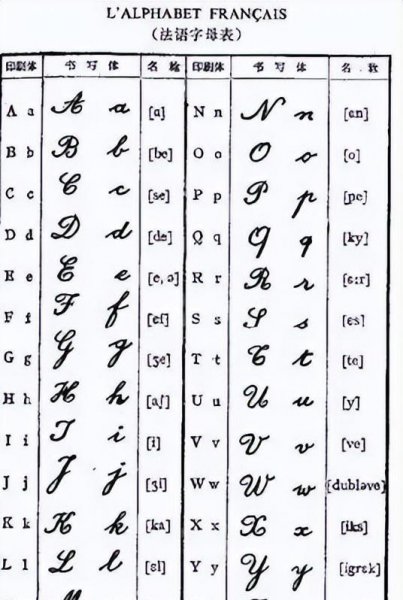 L'ALPHABET FRANÇAIS
(法语字母表)
印刷体 书写体 名称 印刷体 书写体 名称
A a A a [a] N n N n [ɛn]
B b B b [be] O o O o [o]
C c C c [se] P p P p [pe]
D d D d [de] Q q Q q [ky]
E e E e [e, ə] R r R r [ɛ:r]
F f F f [ɛf] S s S s [ɛs]
G g G g [ʒe] T t T t [te]
H h H h [aʃ] U u U u [y]
I i I i [i] V v V v [ve]
J j J j [ʒi] W w W w [dubləve]
K k K k [ka] X x X x [iks]
L l L l [ɛl] Y y Y y [igrɛk]